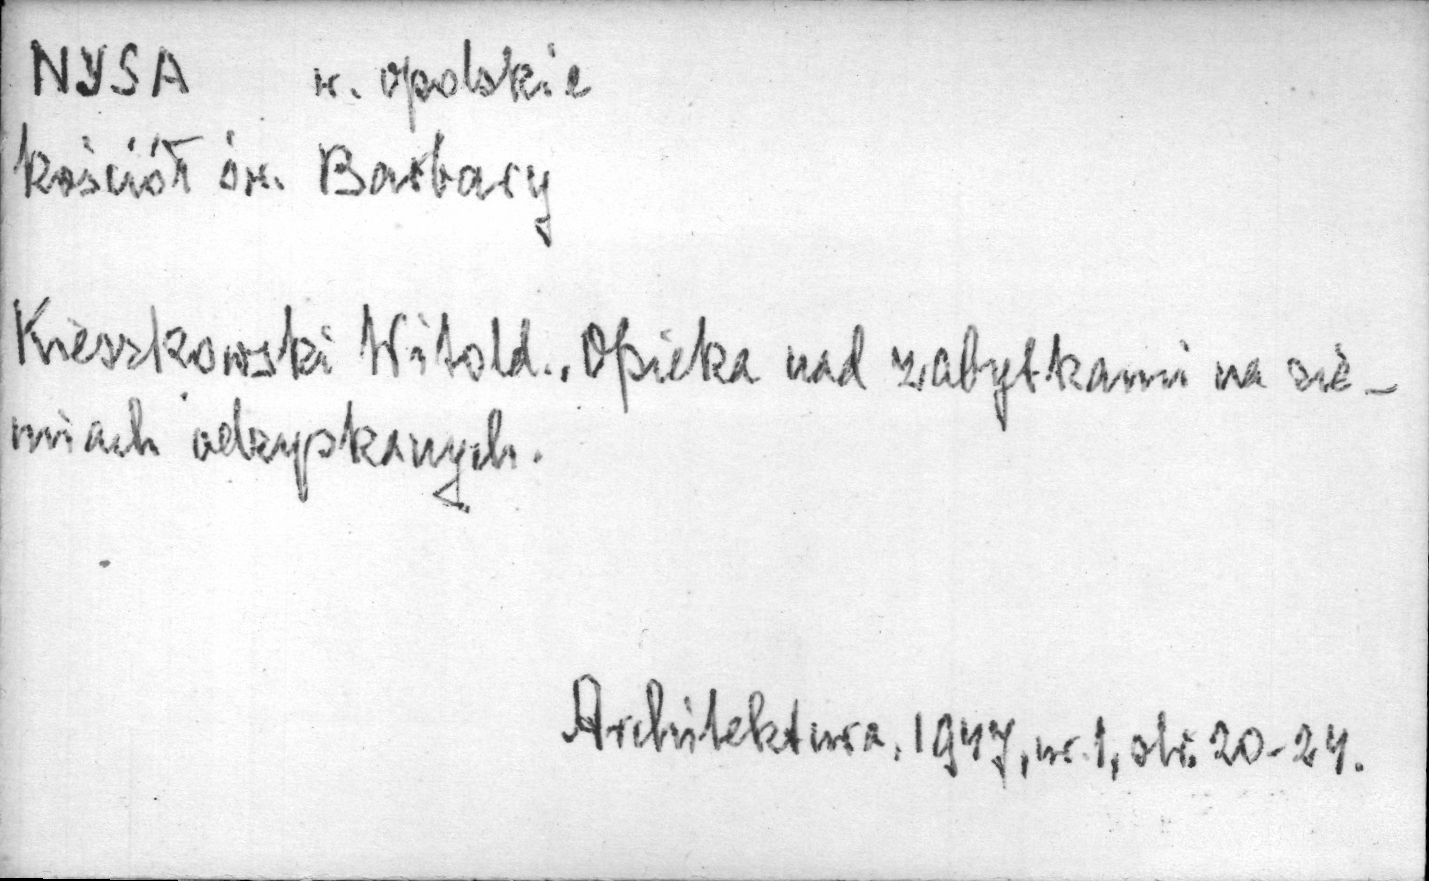 NYSA w. opolskie
kościół św. Barbary
Kieszkowski Witold., Opieka nad zabytkami na zie-
miach odzyskanych.
Architektura, 1947, nr. 1, str. 20-24.